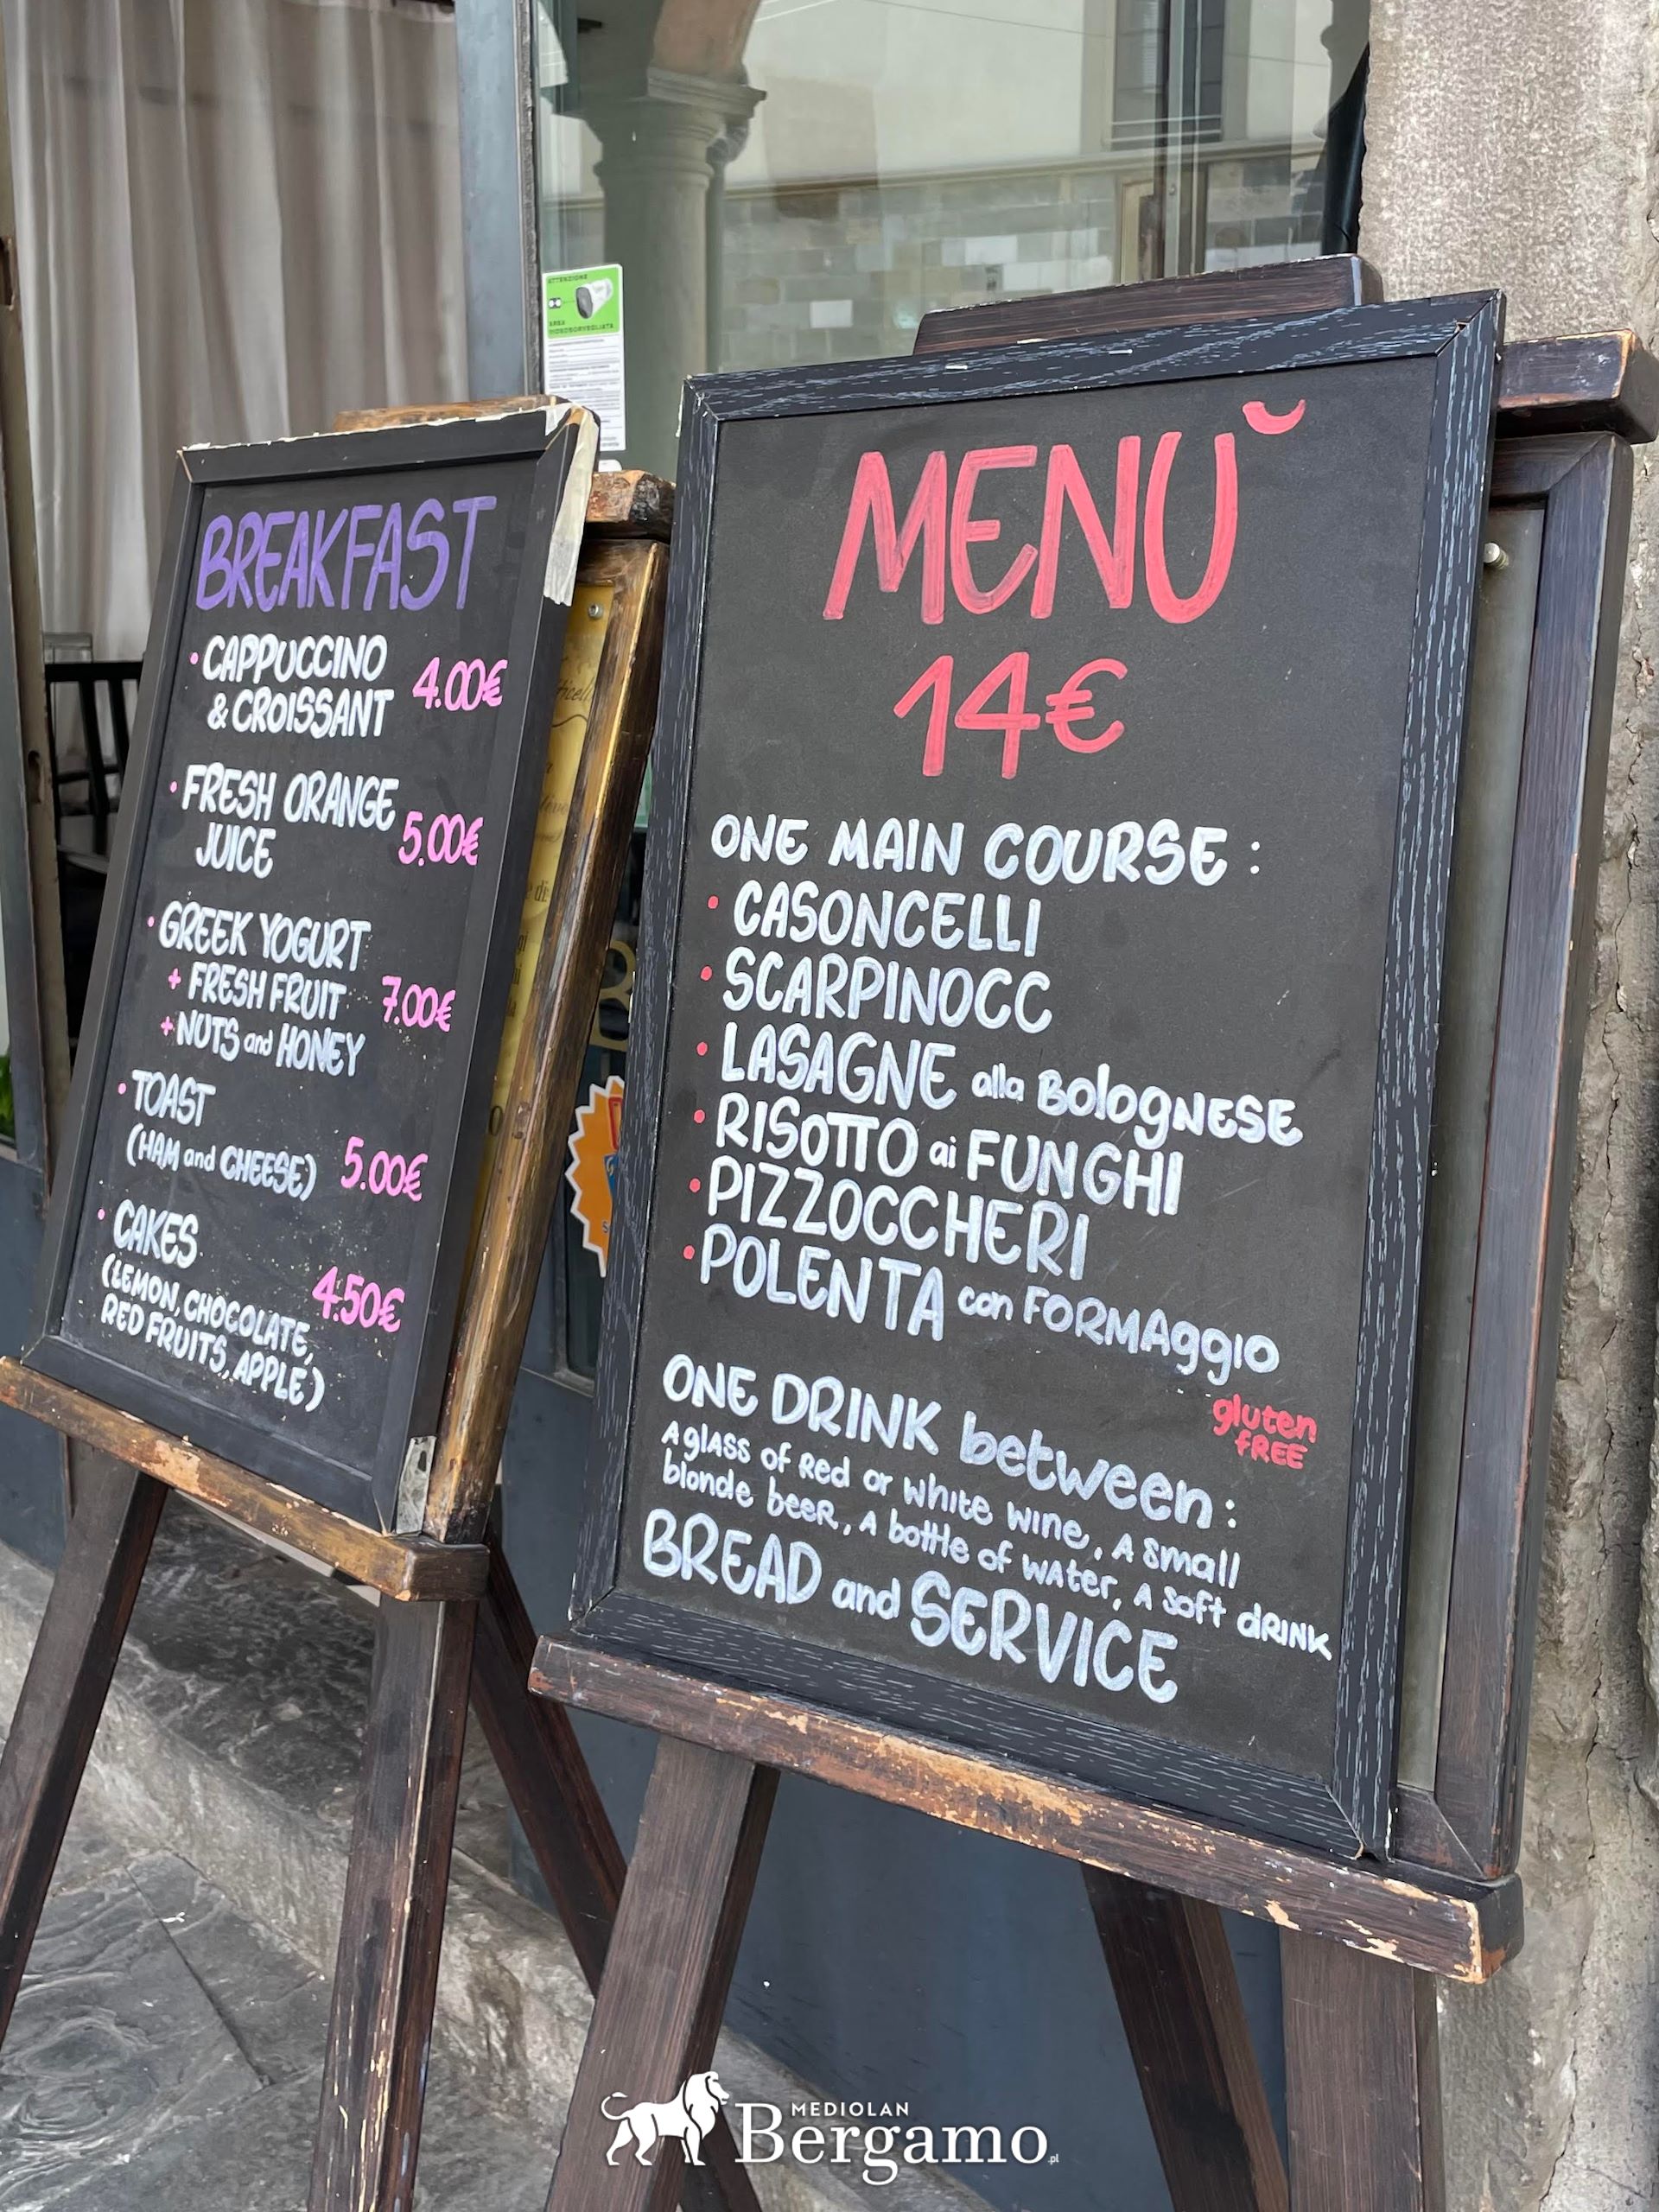 BREAKFAST
• CAPPUCCINO
& CROISSANT 4.00€
• FRESH ORANGE
JUICE 5.00€
• GREEK YOGURT
+ FRESH FRUIT 7.00€
+ NUTS and HONEY
• TOAST
(HAM and CHEESE) 5.00€
• CAKES 4.50€
(LEMON, CHOCOLATE,
RED FRUITS, APPLE)
ATTENZIONE
AREA
VIDEOSORVEGLIATA
MENŬ
14€
ONE MAIN COURSE:
• CASONCELLI
• SCARPINOCC
• LASAGNE alla BOlOgNESE
• RISOTTO ai FUNGHI
• PIZZOCCHERI
• POLENTA con FORMAggIO
gluten
FREE
ONE DRINK between:
A glASS of Red or white wine, A small
blonde beer, A bottle of water, A soft dRINK
BREAD and SERVICE
MEDIOLAN
Bergamo.pl